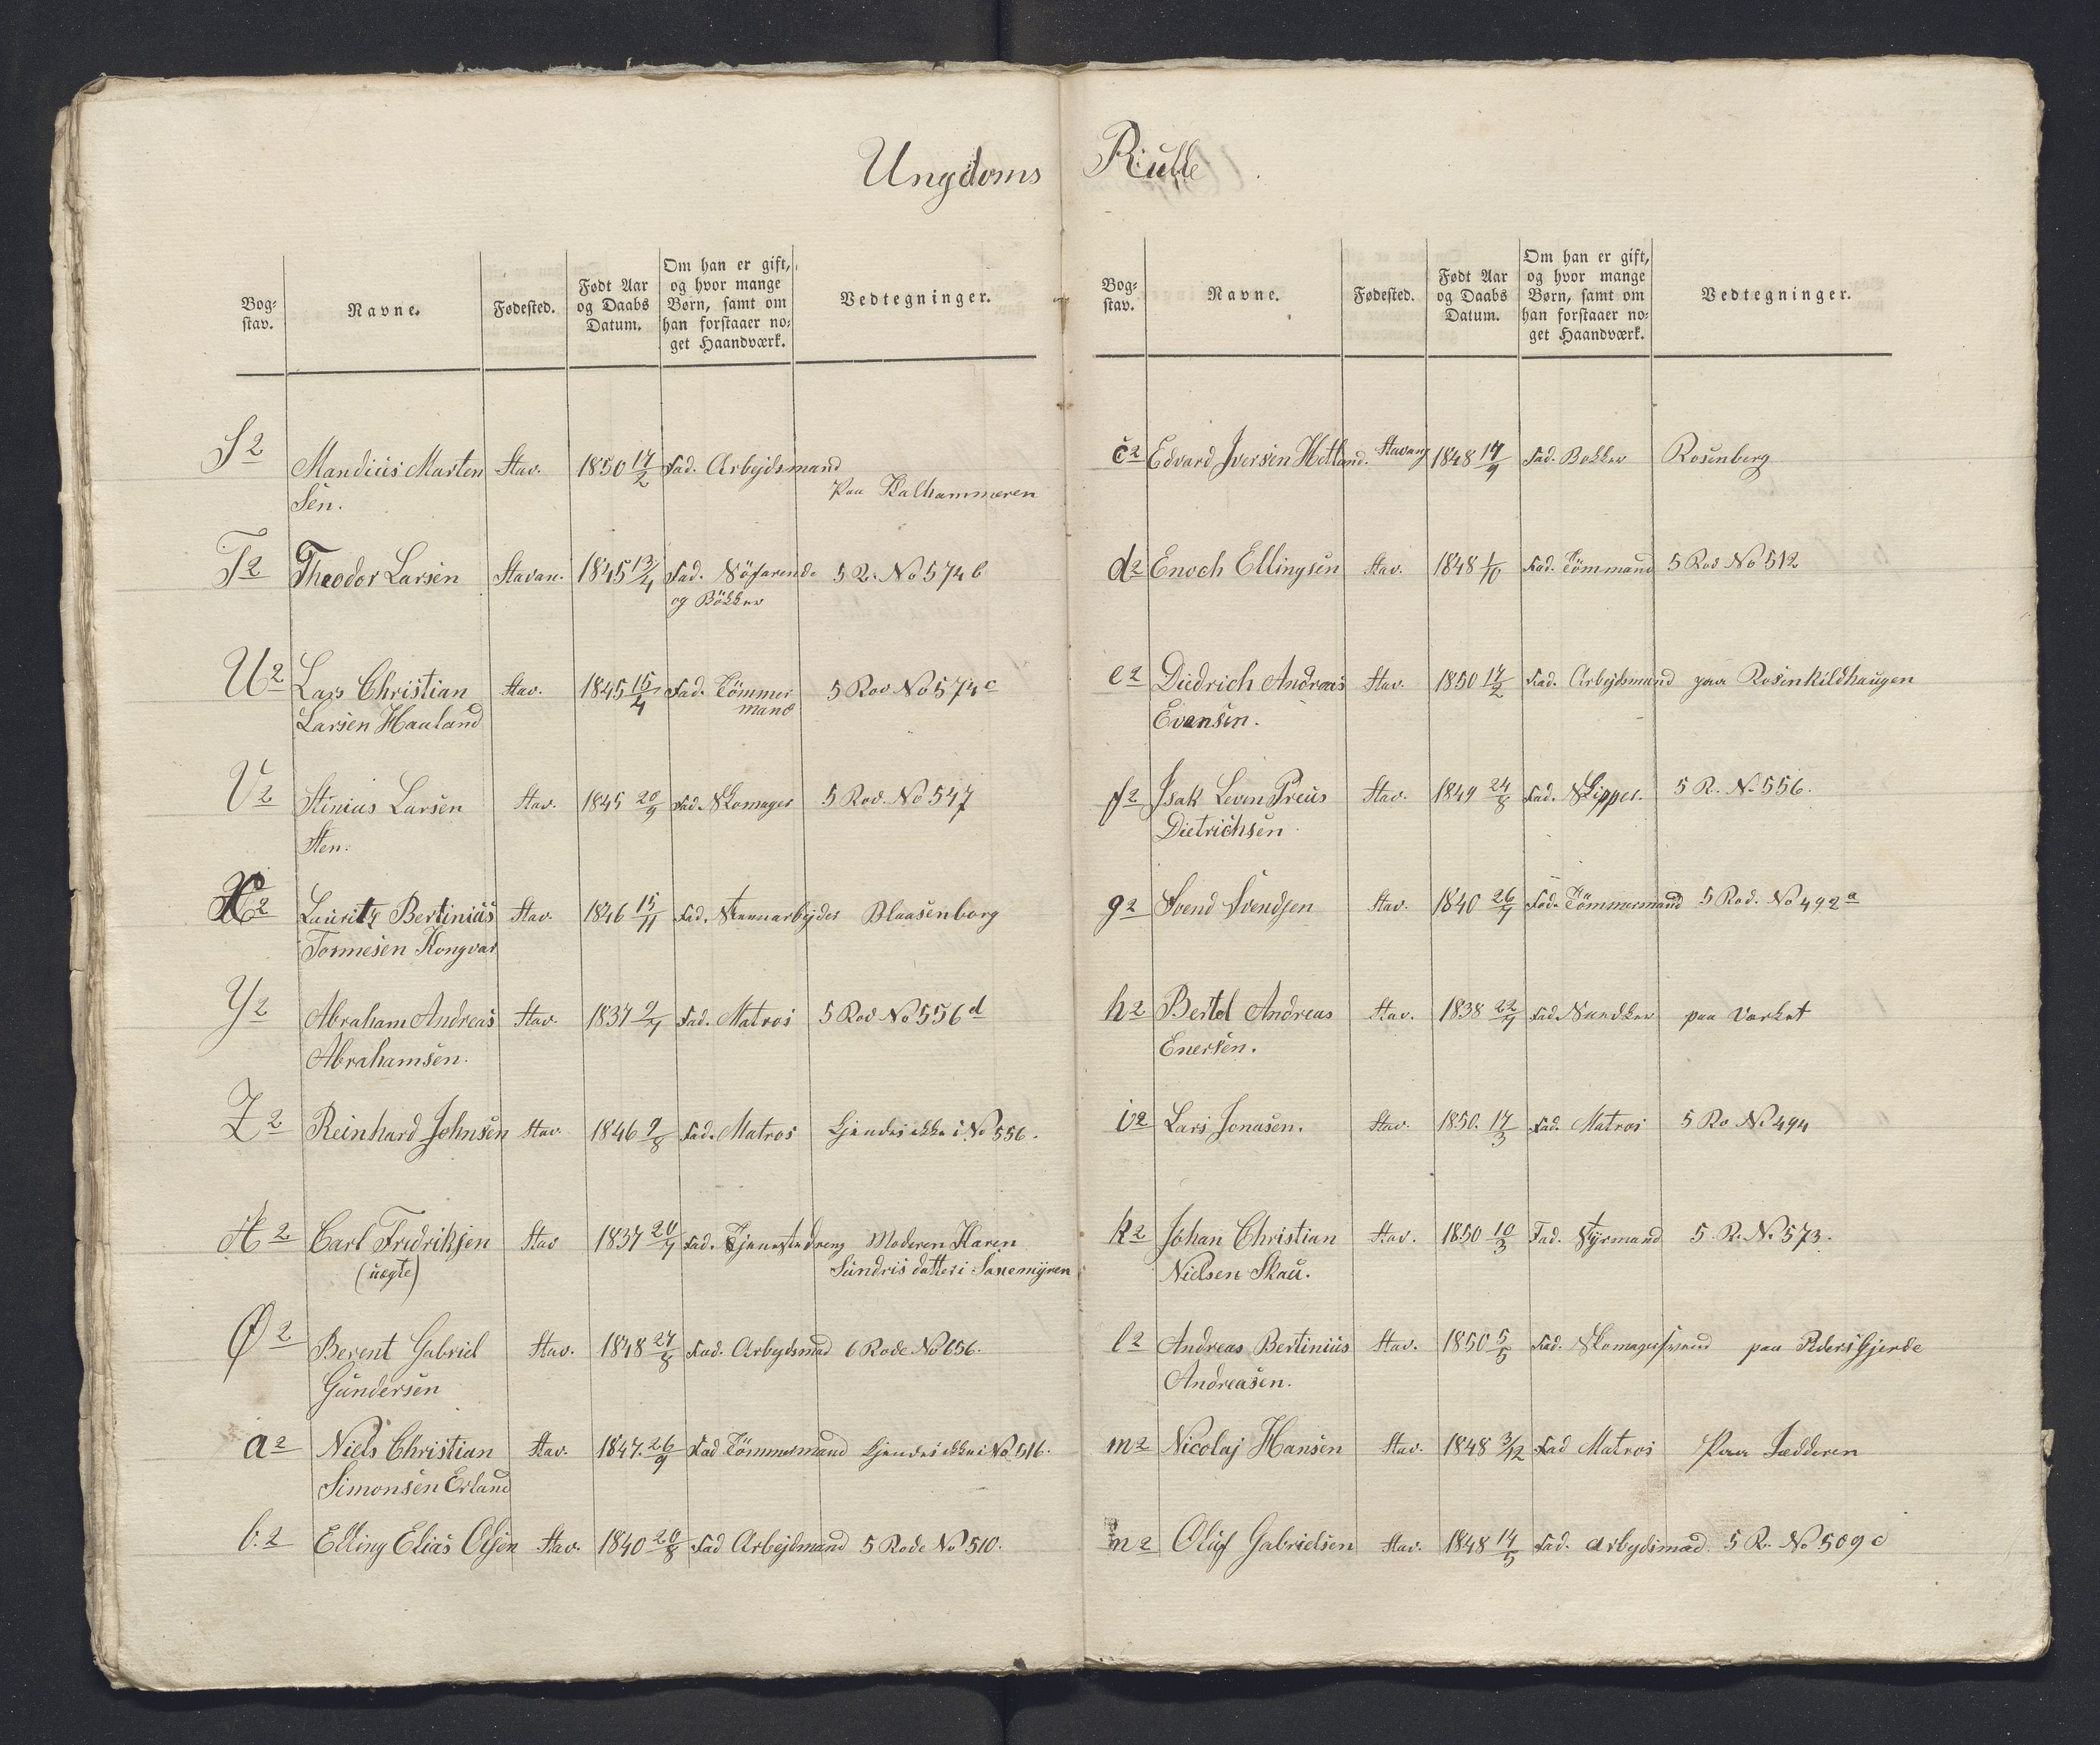 Ungdoms Rulle
Bog-
stav.
Navne.
Fødested.
Født Aar
og Daabs
Datum.
Om han er gift,
og hvor mange
Børn, samt om
han forstaaer no-
get Haandværk.
Vedtegninger.
S2 Mandius Marten Stav. 1850 17/2 Fad. Arbejdsmand
sen. Paa Kalhammeren
T2 Theodor Larsen Stavan. 1845 13/4 Fad. Söfarende 5 R. No 574 b
og Bökker
U2 Lars Christian Stav. 1845 15/4 Fad. Tömmer 5 Rod No 574 c
Larsen Hauland mand
V2 Stinius Larsen Stav. 1845 20/9 Fad. Skomager 5 Rod. No 547
Sten.
X2 Lauritz Bertinius Stav. 1846 15/11 Fad. Steenarbejder Blaasenborg
Tormesen Kongvar
Y2 Abraham Andreas Stav. 1837 9/7 Fad. Matros 5 Rod No 556 d
Abrahamsen.
Z2 Reinhard Johnsen Stav. 1846 9/8 Fad. Matros Kjendes ikke i No 556.
Æ2 Carl Fredriksen Stav 1837 20/7 Fad. Tjenestedreng Moderen Karen
(uægte) Sundris datter i
Ø2 Berent Gabriel Stav. 1848 27/8 Fad. Arbejdsmad 6 Rode No 656.
Gundersen
a2 Niels Christian Stav. 1847. 26/9 Fad Tömmermand kjendes ikke i No 516.
Simonsen Erland
b.2 Elling Elias Olsen Stav. 1840 20/8 Fad Arbejdmand 5 Rode No 510.
Bog-
stav.
Navne.
Fødested.
Født Aar
og Daabs
Datum.
Om han er gift,
og hvor mange
Børn, samt om
han forstaaer no-
get Haandværk.
Vedtegninger.
c2 Edvard Iversen Hetland. Stavang 1848 17/9 Fad. Bøkker Rosenberg
d2 Enoch Ellingsen Stav. 1848 1/10 Fad. Tömmand 5 Rod No 512
e2 Diedrich Andreas Stav. 1850 17/2 Fad. Arbejdsmand paa Rosenkildhaugen
Evensen.
f2 Isak Leven Preus Stav. 1849 24/8 Fad. Skipper. 5 R. No 556.
Dietrichsen
g2 Svend Svendsen Stav. 1840 26/7 Fad. Tömmermand 5 Rod. No 492 a
h2 Bertel Andreas Stav. 1838 22/7 Fad. Snedker paa Verket
Enersen.
i2 Lars Jonasen. Stav. 1850. 17/3 Fad. Matros 5 Ro No 494
k2 Johan Christian Stav. 1850 10/3 Fad. Styrmand 5 R. No 573.
Nielsen Skau.
l2 Andreas Bertinius Stav. 1850 5/5 Fad. Skomagersvend paa PedersGjerde
Andreasen.
m2 Nicolaj Hansen Stav. 1848 3/12 Fad Matros Paa Jædderen
n2 Oluf Gabrielsen Stav. 1848 14/5 Fad. Arbydsmad. 5 R. No 509 c